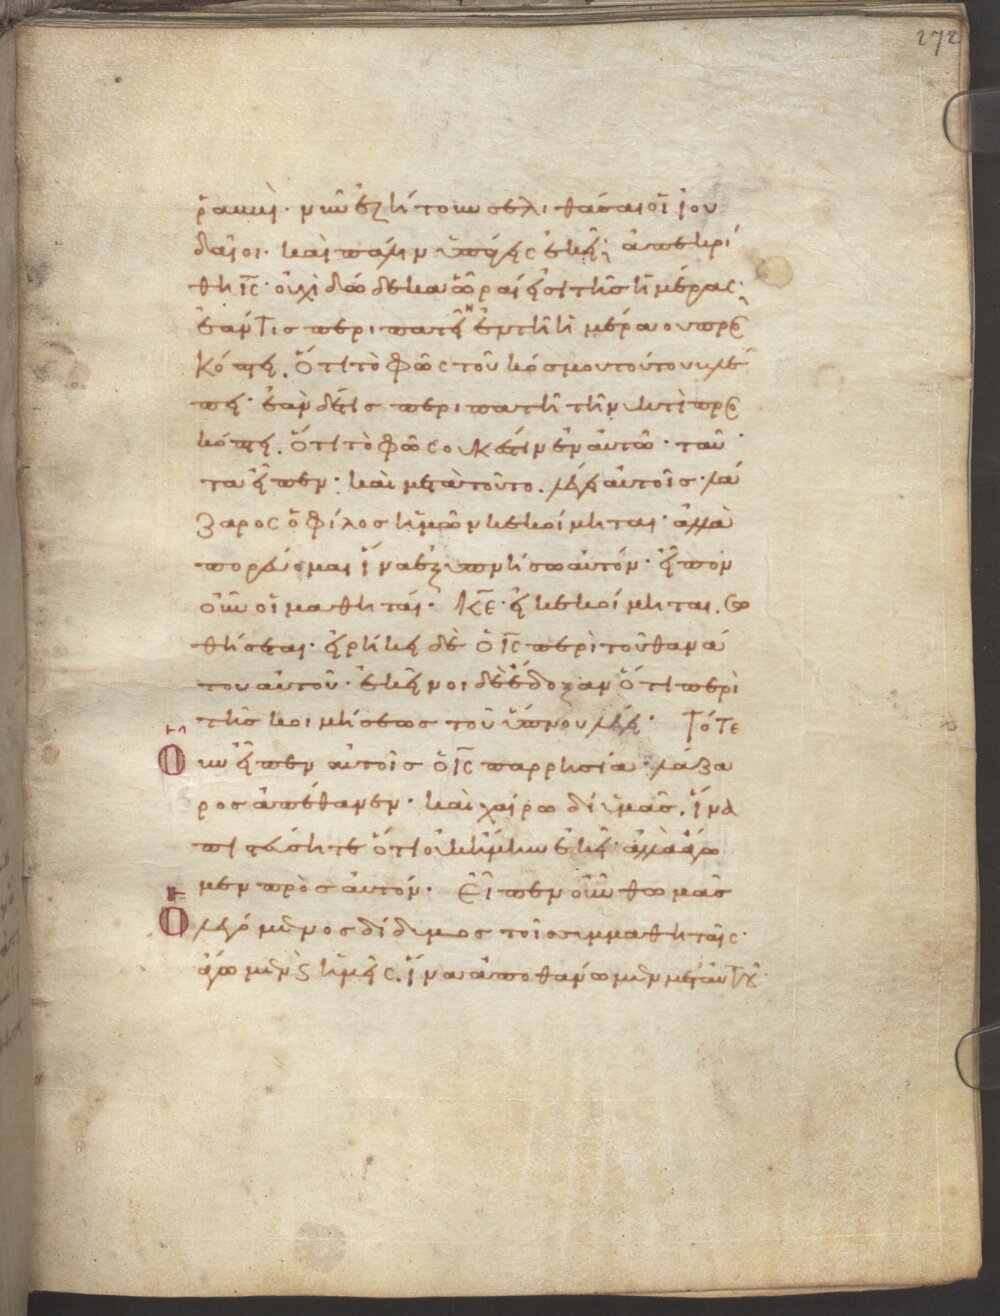 272
ῥαββὶ· νῦν ἐζήτουν σε λιθάσαι οἱ ἰου
δαῖοι· καὶ πάλιν ὑπάγεις ἐκεῖ; ἀπεκρί
θη ις̅· οὐχὶ δώδεκα ὧραί εἰσι τῆς ἡμέρας·
ἐάν τις περιπατεῖ ἐν τῆ ἡμέρα οὐ προσ
κόπτει. ὅτι τὸ φῶς τοῦ κόσμου τούτου βλέ
πει· ἐὰν δέ τις περιπατῆ τῆ νυκτὶ προσ
κόπτει. ὅτι τὸ φῶς οὐκ ἔστιν ἐν αὐτῶ· ταῦ
τα εἶπεν· καὶ μετὰ τοῦτο. λέγει αὐτοῖς· λά
ζαρος ὁ φίλος ἡμῶν κεκοίμηται· ἀλλὰ
πορεύομαι ἵνα ἐξυπνήσω αὐτόν· εἶπον
οὖν οἱ μαθηταί· κε̅· εἰ κεκοίμηται. σω
θήσεται· εἰρήκει δὲ ὁ ις̅ περὶ τοῦ θανά
του αὐτοῦ· ἐκεῖνοι δὲ ἔδοξαν ὅτι περὶ
τῆς κοιμήσεως τοῦ ὕπνου λέγει· Τότε
οὖν εἶπεν αὐτοῖς ὁ ις̅ παρρησία· λάζα
ρος ἀπέθανεν· καὶ χαίρω δι ὑμᾶς. ἵνα
πιστεύσητε ὅτι οὐκ ἤμην ἐκεῖ· ἀλλὰ ἄγω
μεν πρὸς αὐτόν· Εἶπεν οὖν θωμᾶς
ὁ λεγόμενος δίδυμος τοῖς συμμαθηταῖς·
ἄγωμεν ϗ ἡμεῖς. ἵνα ἀποθάνωμεν μετ αὐτοῦ·